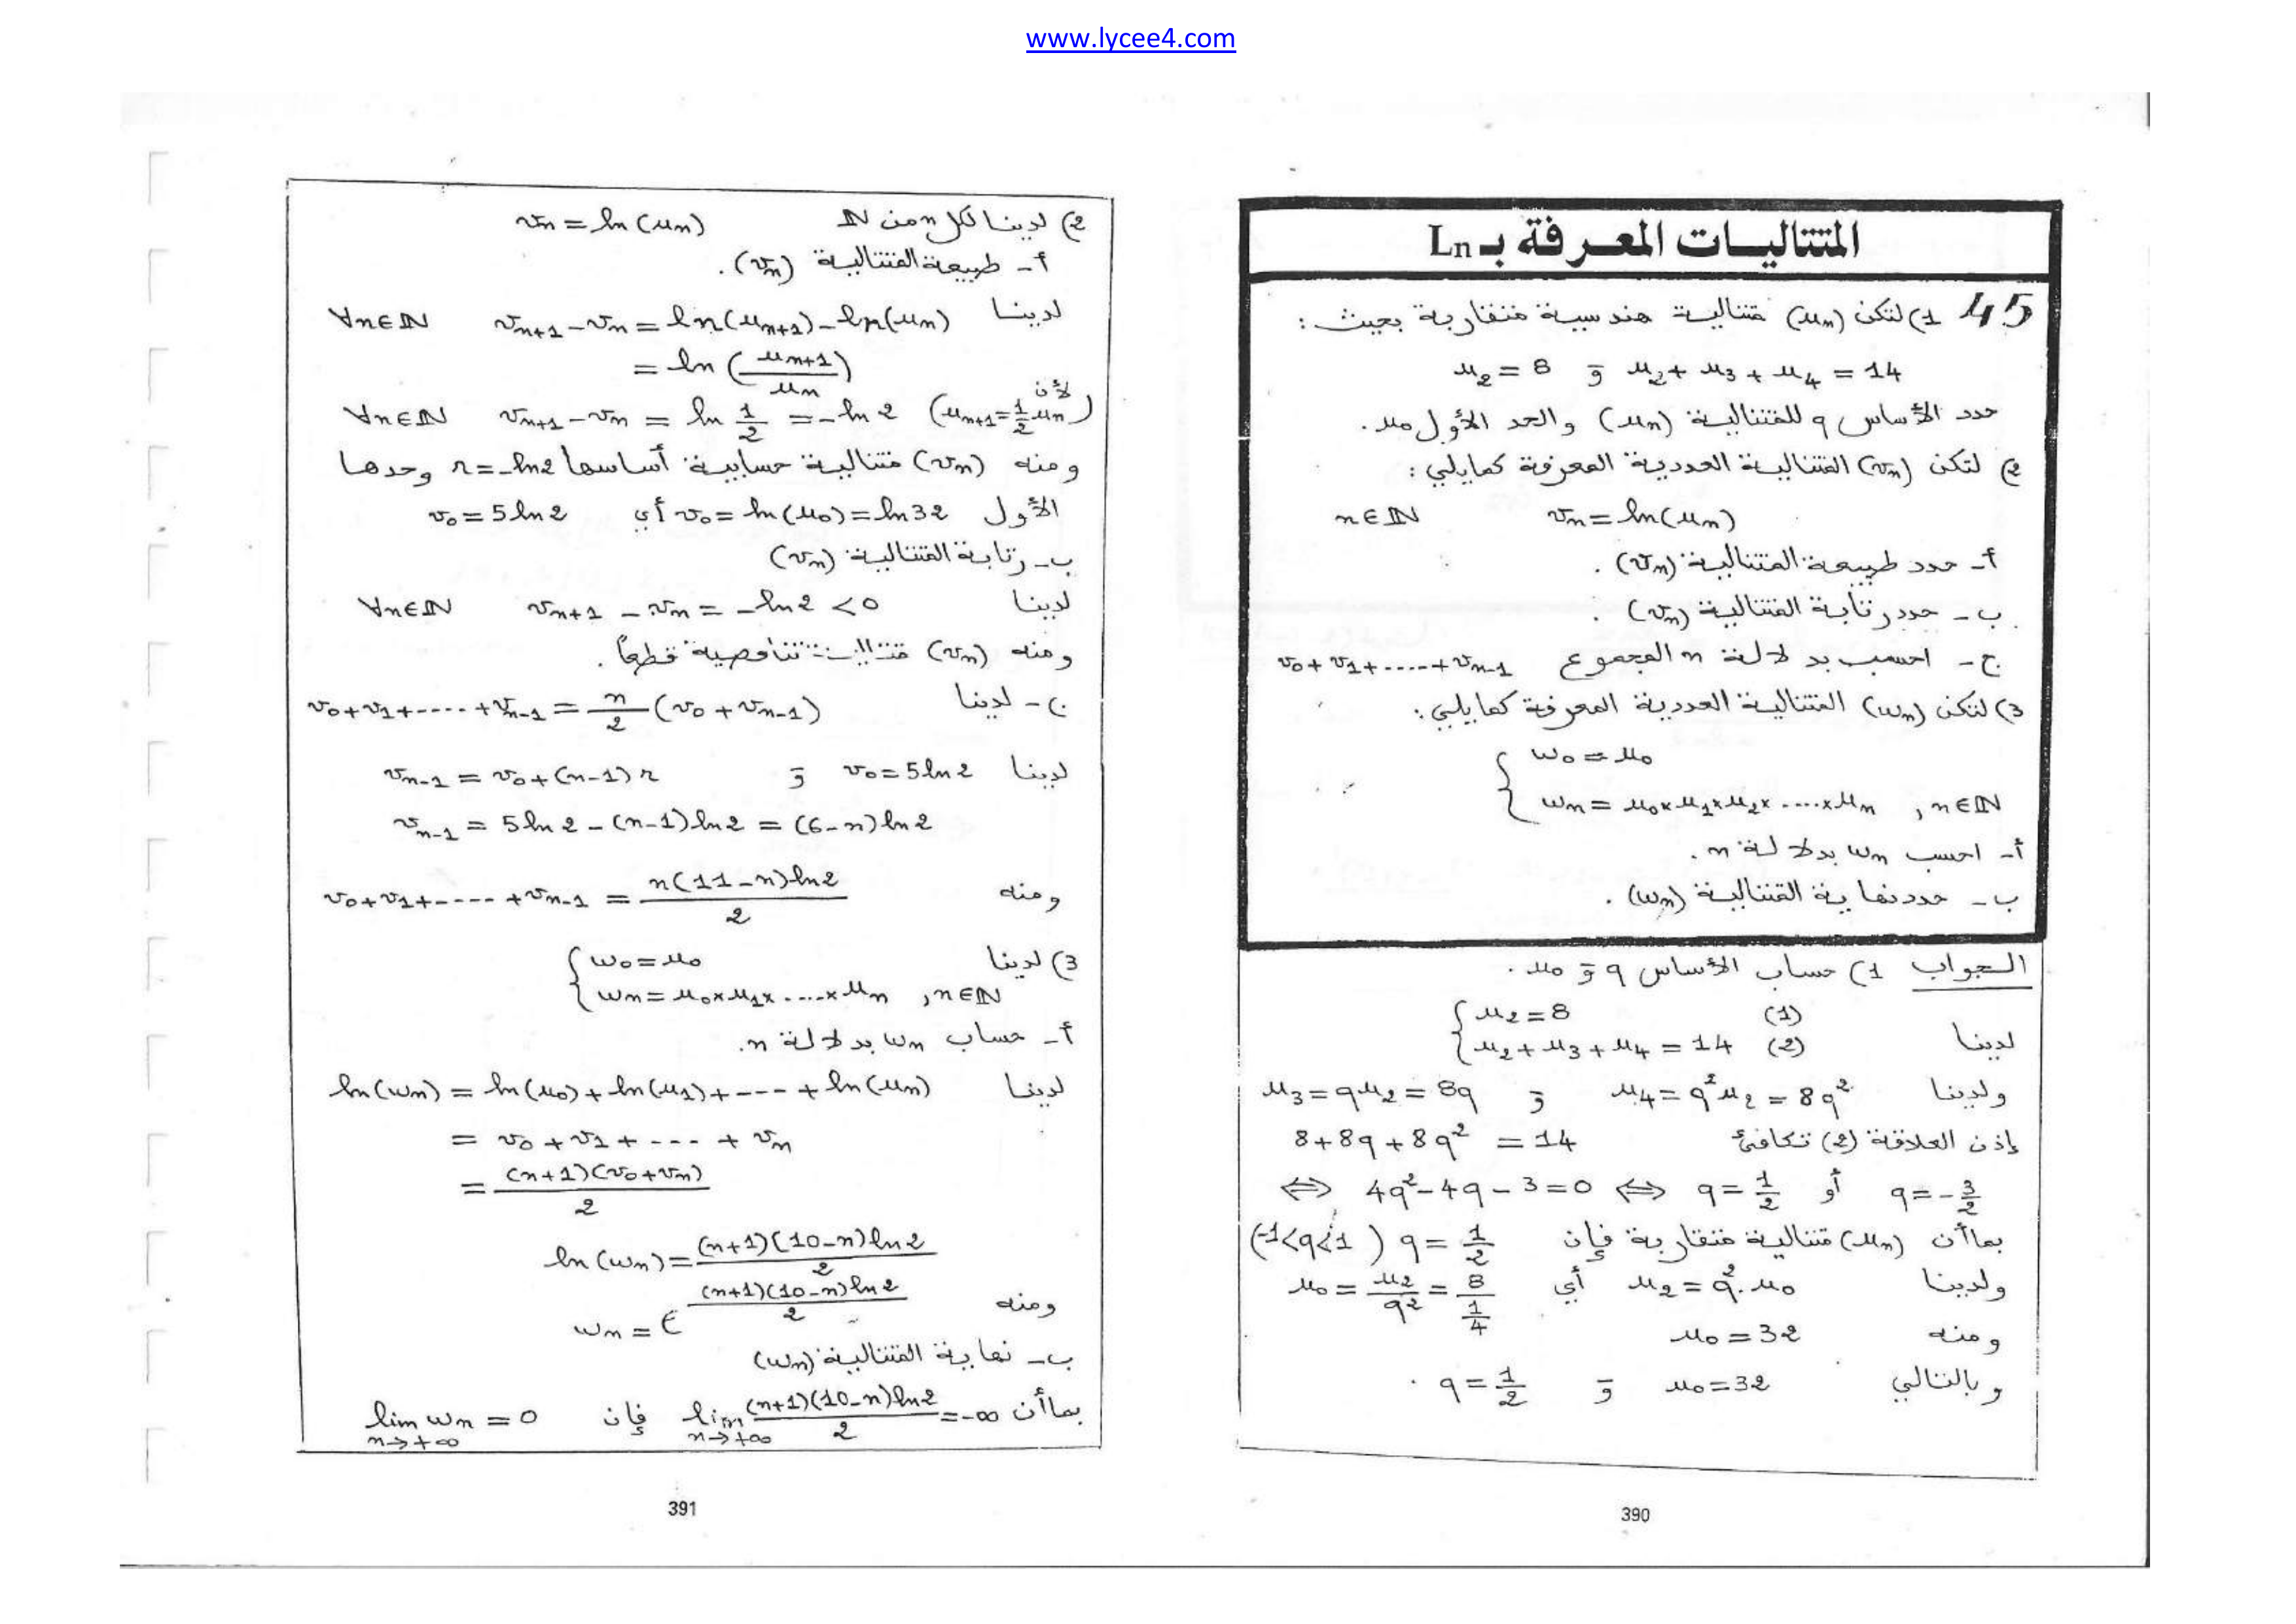 www.lycee4.com
المتتاليات المعرفة بـ Ln
45 1) لتكن (un) متتالية هندسية متقاربة بحيث :
u2 = 8 و u2 + u3 + u4 = 14
حدد الأساس q للمتتالية (un) والحد الأول u0.
2) لتكن (vn) المتتالية العددية المعرفة كمايلي :
vn = ln(un) n∈ℕ
أ- حدد طبيعة المتتالية (vn) .
ب- حدد رتابة المتتالية (vn) .
ج- احسب بدلالة n المجموع v0 + v1 + ..... + vn-1
3) لتكن (wn) المتتالية العددية المعرفة كمايلي :
{ w0 = u0
wn = u0 × u1 × u2 × ..... × un , n∈ℕ
أ- احسب wn بدلالة n .
ب- حدد نهاية المتتالية (wn) .
الجواب 1) حساب الأساس q و u0 .
لدينا { u2 = 8 (1)
u2 + u3 + u4 = 14 (2)
ولدينا u4 = q²u2 = 8q² و u3 = qu2 = 8q
إذن العلاقة (2) تكافئ 8 + 8q + 8q² = 14
⇔ 4q² - 4q - 3 = 0 ⇔ q = 1/2 أو q = -3/2
بماأن (un) متتالية متقاربة فإن q = 1/2 (-1<q<1)
ولدينا u2 = q².u0 أي u0 = u2/q² = 8/(1/4)
ومنه u0 = 32
وبالتالي u0 = 32 و q = 1/2 .
390
2) لدينا لكل n من ℕ vn = ln(un)
أ- طبيعة المتتالية (vn) .
لدينا vn+1 - vn = ln(un+1) - ln(un) ∀n∈ℕ
= ln(un+1/un)
∀n∈ℕ vn+1 - vn = ln 1/2 = -ln 2 (لأن un+1 = 1/2 un)
ومنه (vn) متتالية حسابية أساسها r = -ln2 وحدها
الأول v0 = ln(u0) = ln32 أي v0 = 5ln2
ب- رتابة المتتالية (vn)
لدينا vn+1 - vn = -ln2 < 0 ∀n∈ℕ
ومنه (vn) متتالية تناقصية قطعاً .
ج- لدينا v0 + v1 + ..... + vn-1 = n/2 (v0 + vn-1)
لدينا v0 = 5ln2 و vn-1 = v0 + (n-1)r
vn-1 = 5ln2 - (n-1)ln2 = (6-n)ln2
ومنه v0 + v1 + ---- + vn-1 = n(11-n)ln2/2
3) لدينا { w0 = u0
wn = u0 × u1 × ..... × un , n∈ℕ
أ- حساب wn بدلالة n .
لدينا ln(wn) = ln(u0) + ln(u1) + --- + ln(un)
= v0 + v1 + --- + vn
= (n+1)(v0+vn)/2
ln(wn) = (n+1)(10-n)ln2/2
ومنه wn = e^((n+1)(10-n)ln2/2)
ب- نهاية المتتالية (wn)
بماأن lim n→+∞ (n+1)(10-n)ln2/2 = -∞ فإن lim n→+∞ wn = 0
391